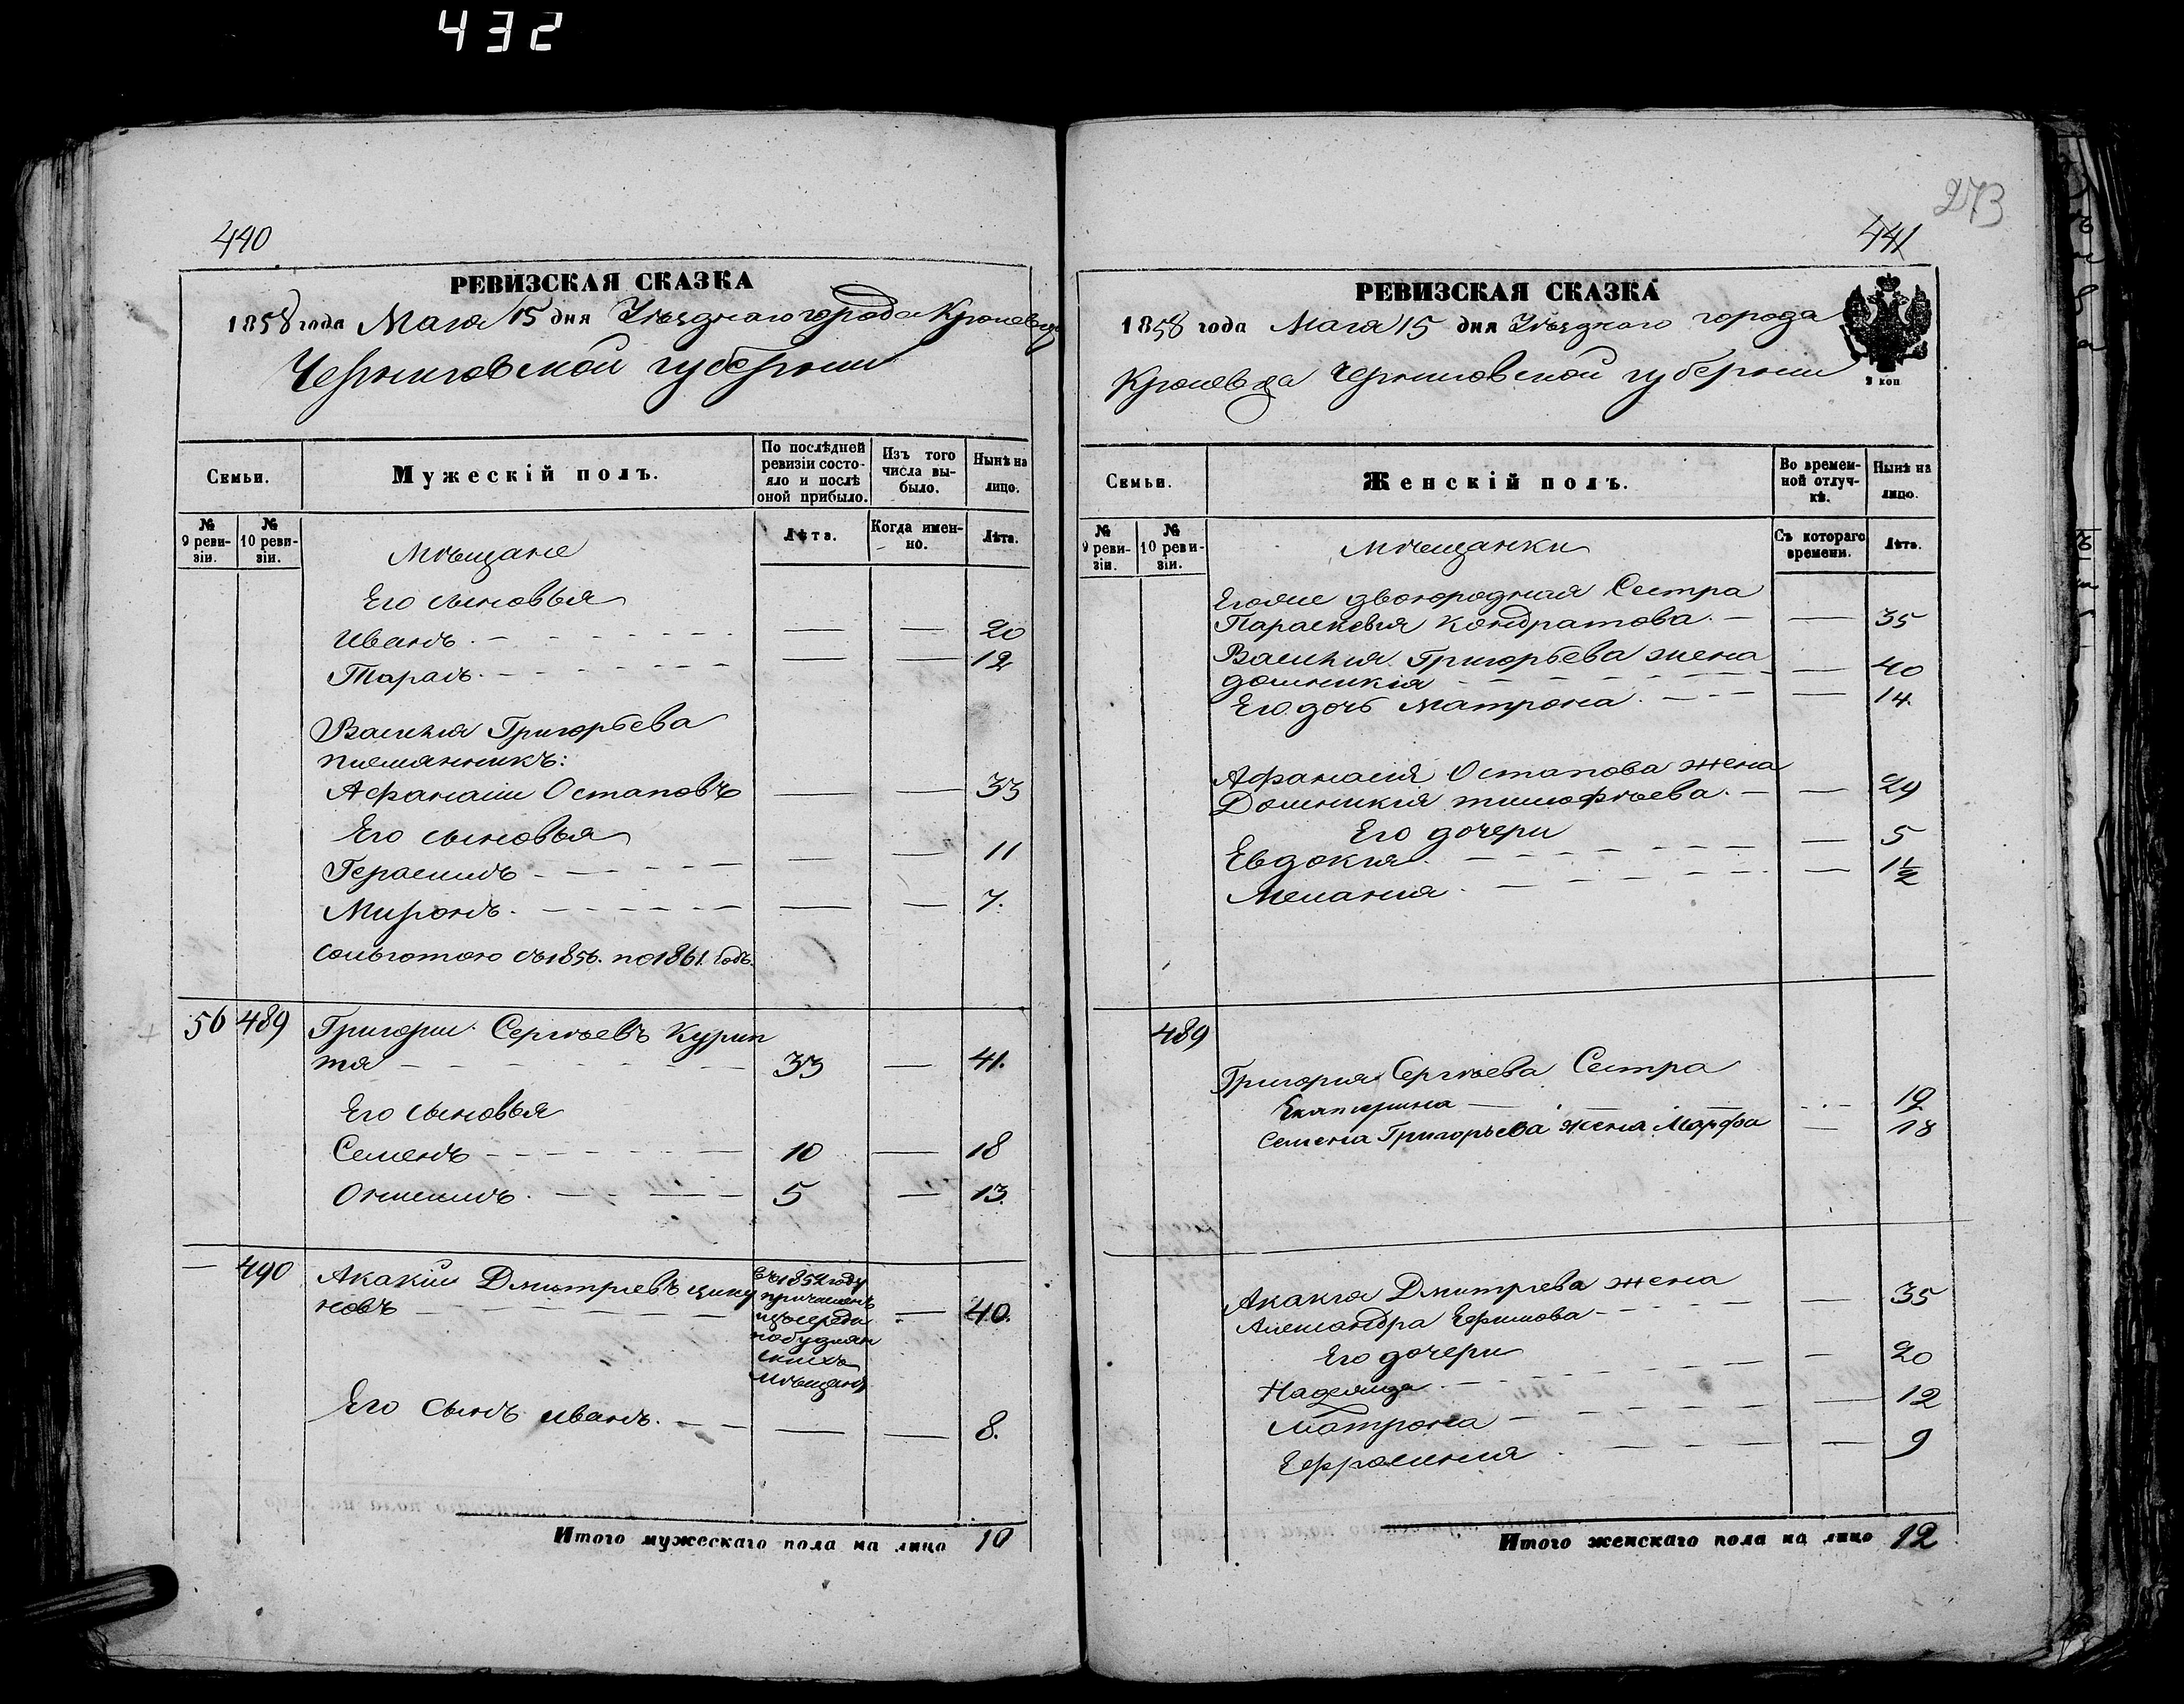 432
440
РЕВИЗСКАЯ СКАЗКА
1858 года Мая 15 дня Уѣзднаго города Кролевца
Черниговской губернии
Семьи.
Мужескій полъ.
По послѣдней ревизіи состояло и послѣ оной прибыло.
Изъ того числа выбыло.
Нынѣ на лицо.
№ 9 ревизіи.
№ 10 ревизіи.
Мѣщане
Лѣта.
Когда именно.
Лѣта.
Его сыновья
Иванъ. — — 20
Тарасъ. — — 12
Василия Григорьева
племянникъ:
Афанасии Остаповъ — — 33
Его сыновья
Герасимъ — — 11
Миронъ. — — 7.
сольготою съ1856. по1861. Годъ.
56 489 Григории Сергѣевъ Курип
тя 33 — 41.
Его сыновья
Семенъ 10 — 18
Онисимъ. 5 — 13.
— 490 Акакии Дмитриевъ цику
новъ — 40.
Въ1852 году
причисленъ
изъсереди
нобудлян
скихъ
Мѣщанъ
Его Сынъ иванъ. — — 8.
Итого мужескаго пола на лицо 10
273
441
РЕВИЗСКАЯ СКАЗКА
1858 года Мая 15 дня Уѣзднаго города
Кролевца Черниговской губернии
2 коп
Семьи.
Женскій полъ.
Во временной отлучкѣ.
Нынѣ на лицо.
№ 9 ревизіи.
№ 10 ревизіи.
Мѣщанки
Съ котораго времени.
Лѣта.
Егоже двоюродная Сестра
Параскевия Кондратова. — 35
Василия Григорьева жена
домникия — 40
Его дочь Матрона. — 14.
Афанасия Остапова жена
Домникия тимофѣева. — 29
Его дочери
Евдокия. — 5
Мелания. — 1½
489
Григория Сергѣева Сестра
Екатерина — 19
Семена Григорьева жена Марфа — 18
Акакия Дмитриева жена
Александра Ефимова — 35
Его дочери
Надежда. — 20
Матрона — 12
Ефросиния. — 9
Итого женскаго пола на лицо 12